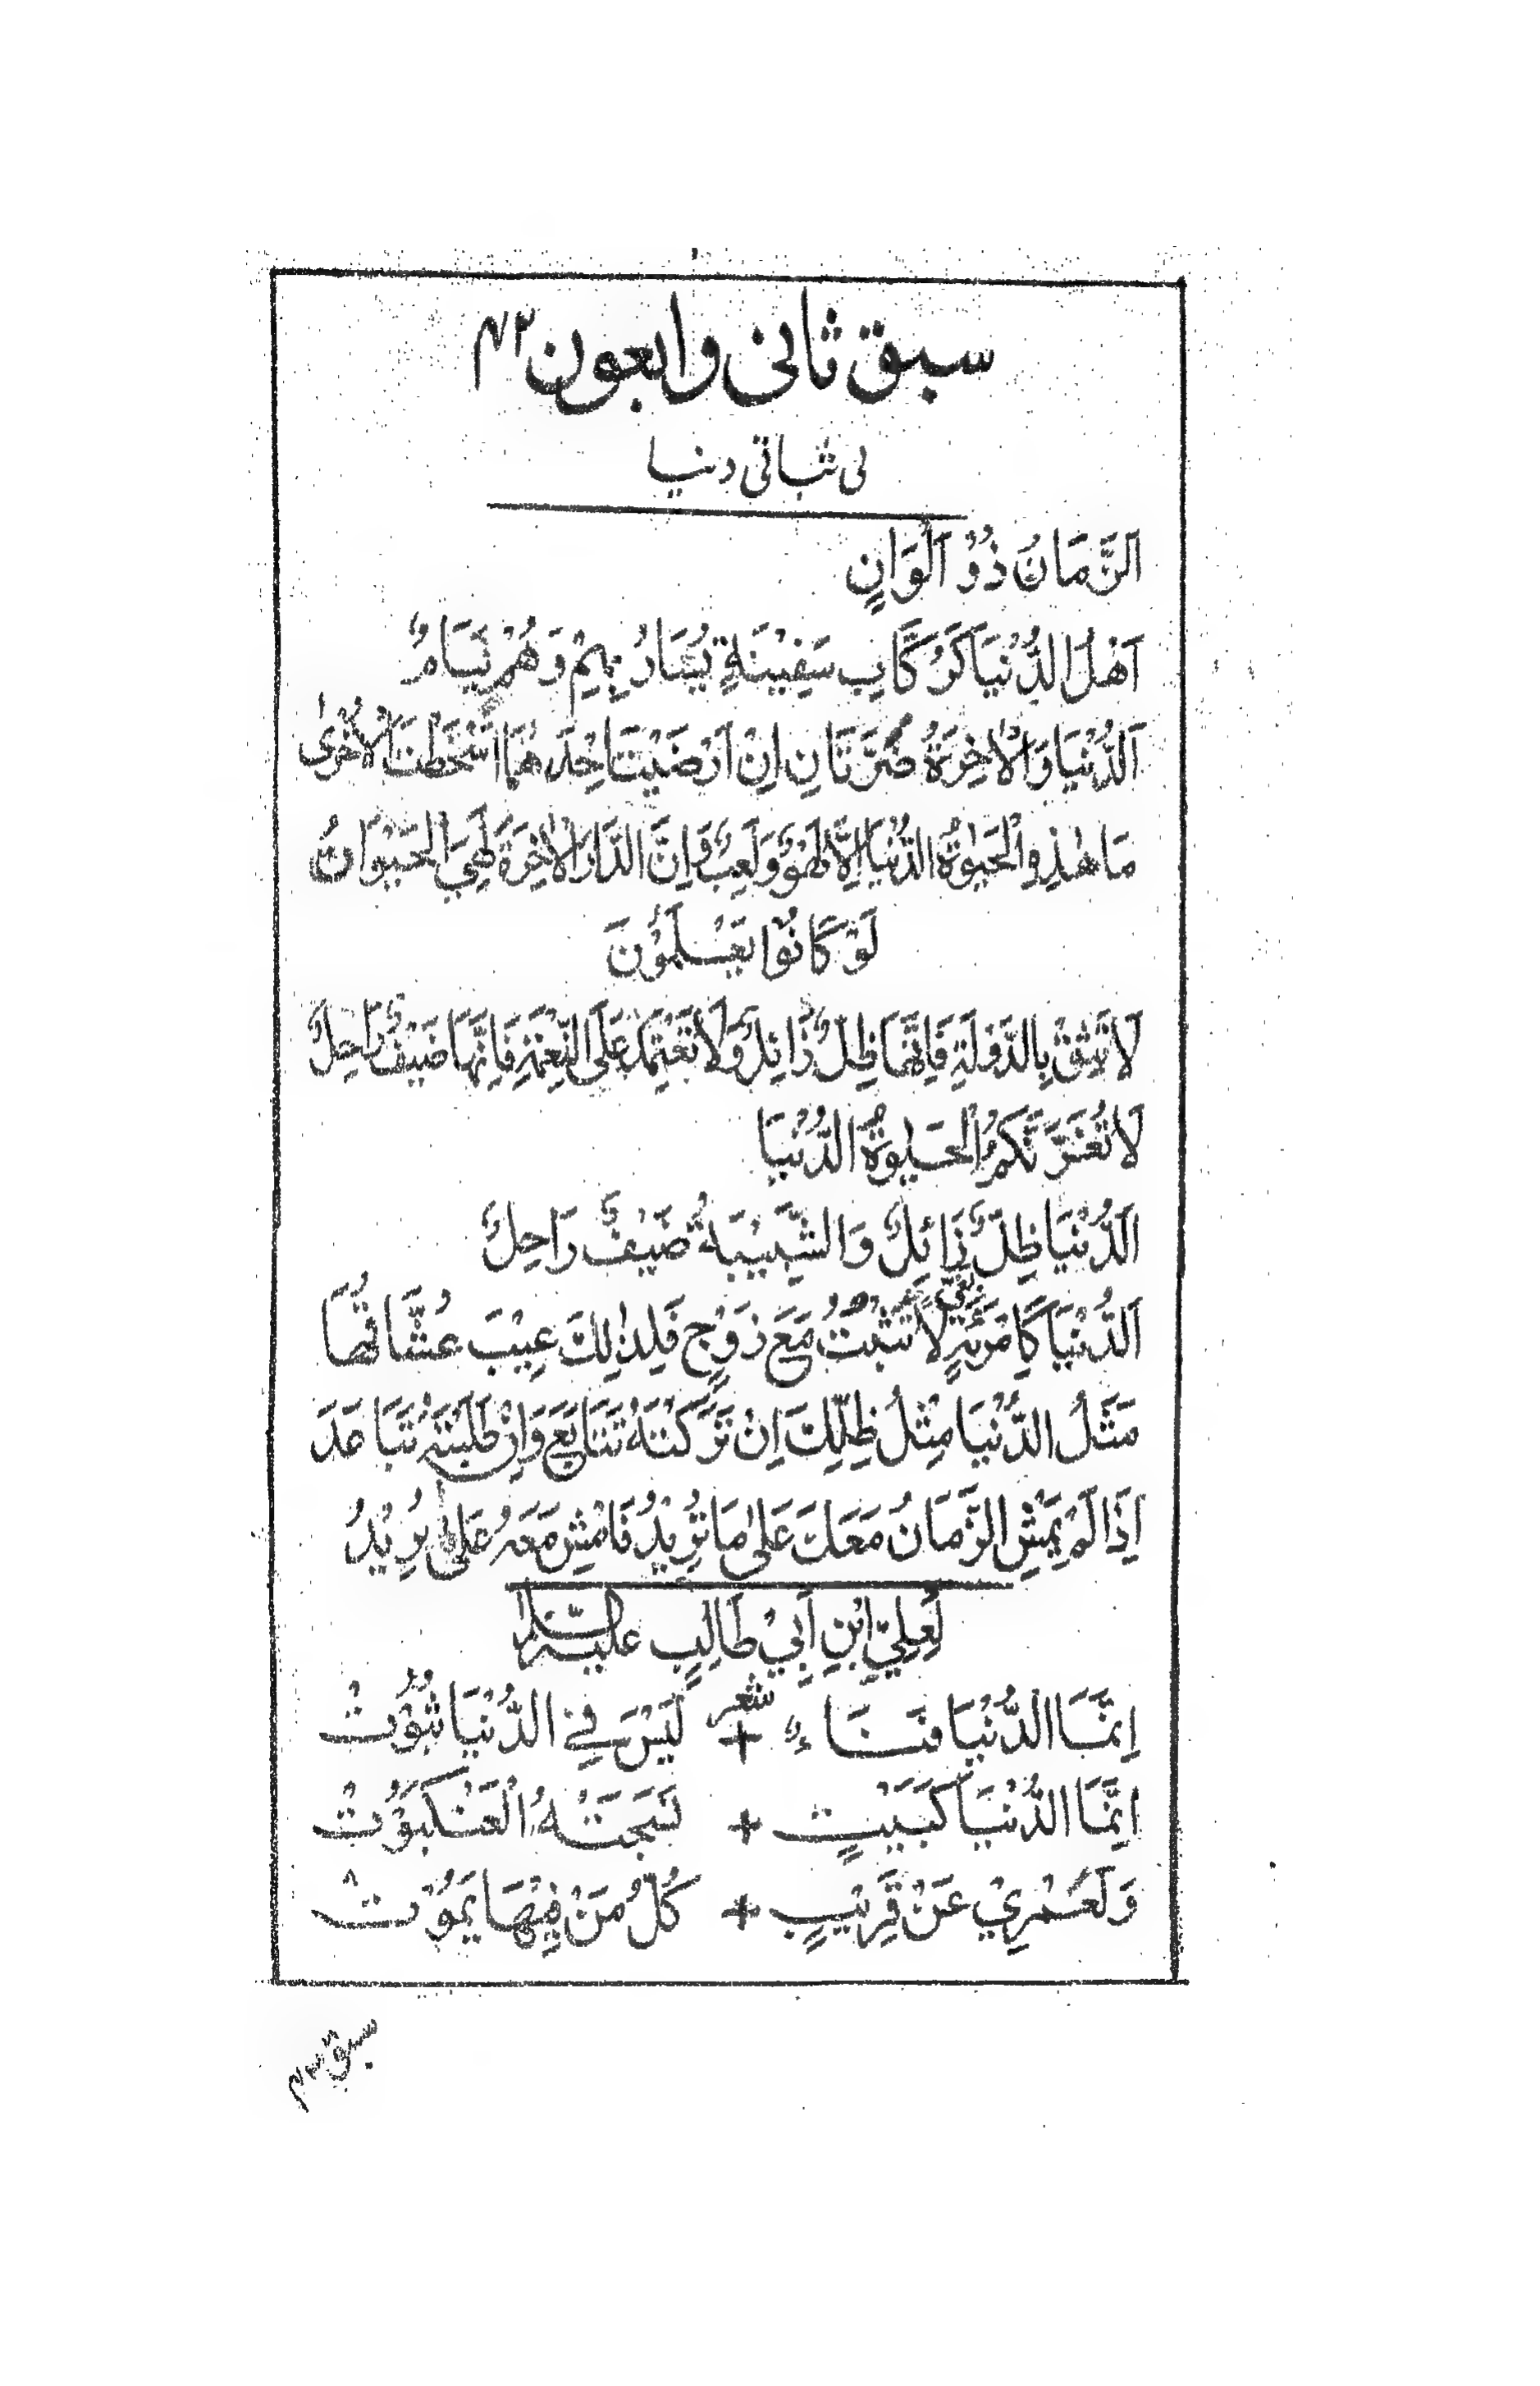 سبق ثانی و ابعون ۴۳
بی ثباتی دنیا
اَلزَّمَانُ ذُوْ اَلْوَانٍ
اَهْلُ الدُّنْيَا كَرُكَّابِ سَفِيْنَةٍ يُسَارُ بِهِمْ وَهُمْ نِيَامٌ
اَلدُّنْيَا وَالْاٰخِرَةُ ضَرَّتَانِ اِنْ اَرْضَيْتَ اِحْدٰهُمَا اَسْخَطْتَ الْاُخْرٰى
مَا هٰذِهِ الْحَيٰوةُ الدُّنْيَا اِلَّا لَهْوٌ وَلَعِبٌ وَاِنَّ الدَّارَ الْاٰخِرَةَ لَهِيَ الْحَيَوَانُ
لَوْ كَانُوْا يَعْلَمُوْنَ
لَا تَثِقْ بِالدَّوْلَةِ فَاِنَّهَا ظِلٌّ زَائِلٌ وَلَا تَعْتَمِدْ عَلَى النِّعْمَةِ فَاِنَّهَا ضَيْفٌ رَاحِلٌ
لَا تَغُرَّنَّكُمُ الْحَيٰوةُ الدُّنْيَا
اَلدُّنْيَا ظِلٌّ زَائِلٌ وَالشَّبِيْبَةُ ضَيْفٌ رَاحِلٌ
اَلدُّنْيَا كَامْرَئَةٍ لَا تَثْبُتُ مَعَ زَوْجٍ فَلِذٰلِكَ عِيْبَ عُشَّاقُهَا
مَثَلُ الدُّنْيَا مِثْلُ ظِلِّكَ اِنْ تَرَكْتَهُ تَتَابَعَ وَاِنْ طَلَبْتَهُ تَبَاعَدَ
اِذَا لَمْ يَمْشِ الزَّمَانُ مَعَكَ عَلٰى مَا تُرِيْدُ فَامْشِ مَعَهُ عَلٰى مَا يُرِيْدُ
لِعَلِيِّ ابْنِ اَبِيْ طَالِبٍ عليه السلام
شعر
اِنَّمَا الدُّنْيَا فَنَاءٌ + لَيْسَ فِي الدُّنْيَا ثُبُوْتْ
اِنَّمَا الدُّنْيَا كَبَيْتٍ + نَسَجَتْهُ الْعَنْكَبُوْتْ
وَلَعَمْرِيْ عَنْ قَرِيْبٍ + كُلُّ مَنْ فِيْهَا يَمُوْتْ
سبق ۴۳